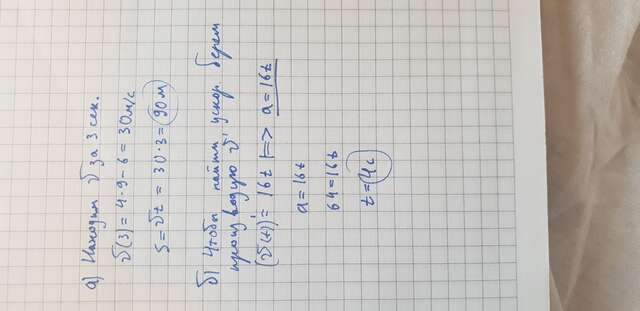 а) Находим v за 3 сек.
v(3) = 4·9-6 = 30м/с
S = vt = 30·3 = 90м
б) Чтобы найти ускор. берем
производую v'
(v(t))' = 16t |=> a = 16t
a = 16t
64 = 16t
t = 4с